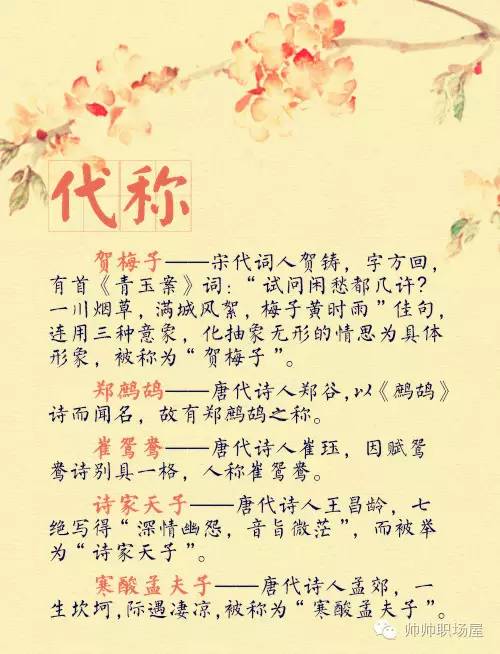 代称
贺梅子——宋代词人贺铸，字方回，
有首《青玉案》词：“试问闲愁都几许？
一川烟草，满城风絮，梅子黄时雨”佳句，
连用三种意象，化抽象无形的情思为具体
形象，被称为“贺梅子”。
郑鹧鸪——唐代诗人郑谷,以《鹧鸪》
诗而闻名，故有郑鹧鸪之称。
崔鸳鸯——唐代诗人崔珏，因赋鸳
鸯诗别具一格，人称崔鸳鸯。
诗家天子——唐代诗人王昌龄，七
绝写得“深情幽怨，音旨微茫”，而被举
为“诗家天子”。
寒酸孟夫子——唐代诗人孟郊，一
生坎坷,际遇凄凉,被称为“寒酸孟夫子”。
帅帅职场屋